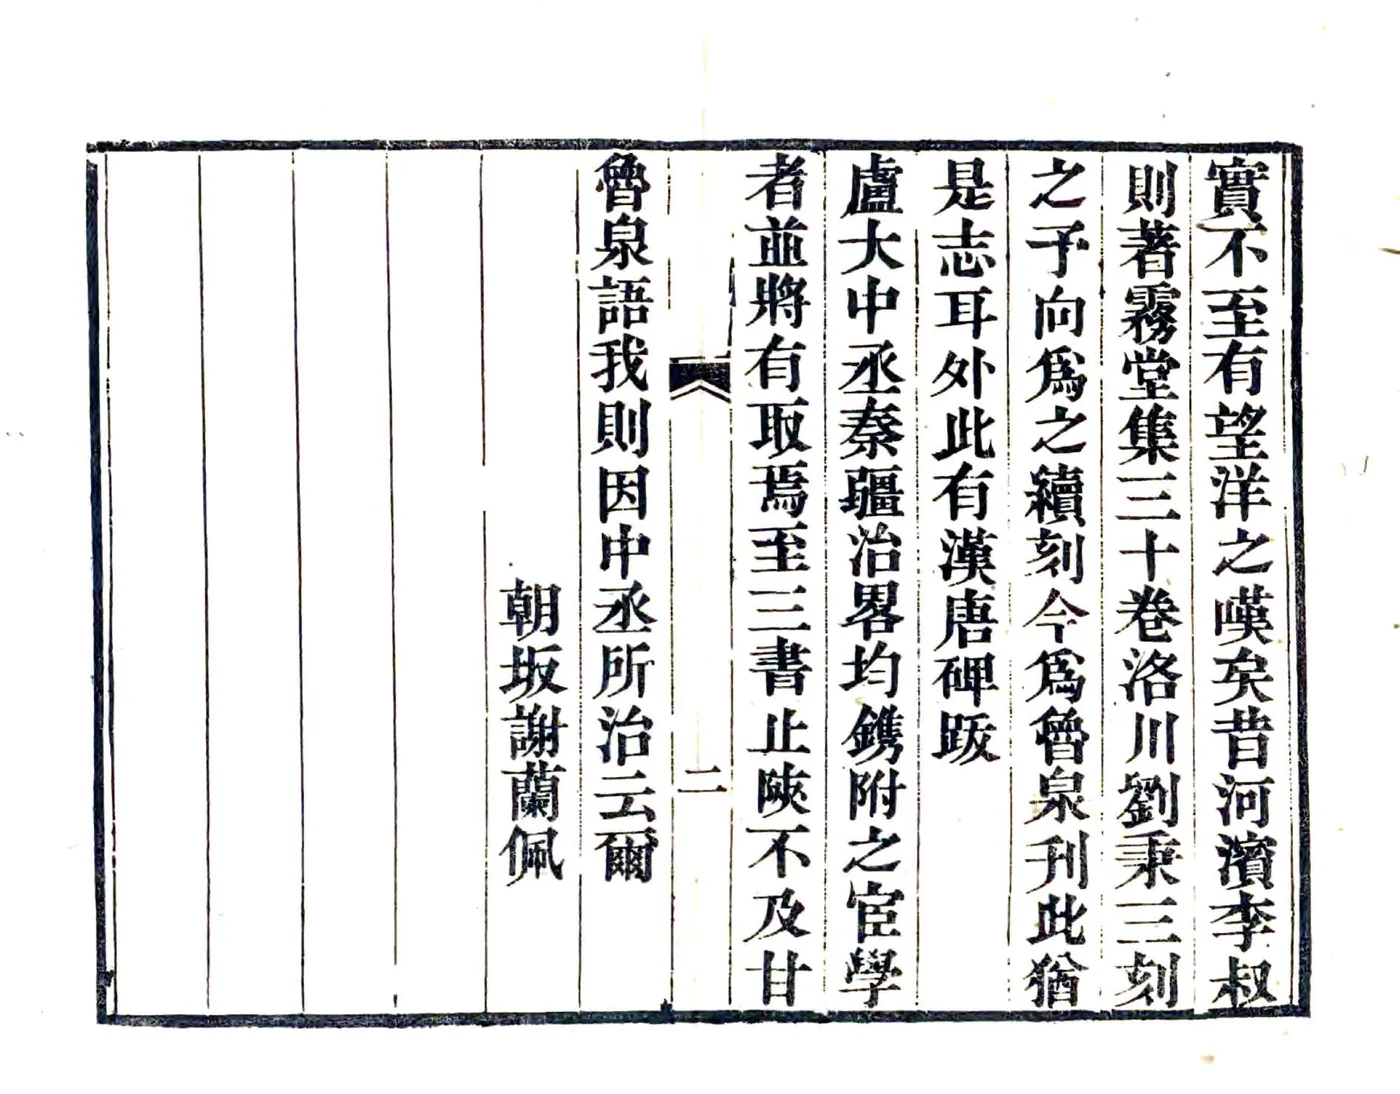 實不至有望洋之嘆矣昔河濱李叔
則著霧堂集三十卷洛川劉秉三刻
之予向爲之續刻今爲魯泉刊此猶
是志耳外此有漢唐碑跋
盧大中丞秦疆治畧均鐫附之宦學
者並將有取焉至三書止陝不及甘
二
魯泉語我則因中丞所治云爾
朝坂謝蘭佩